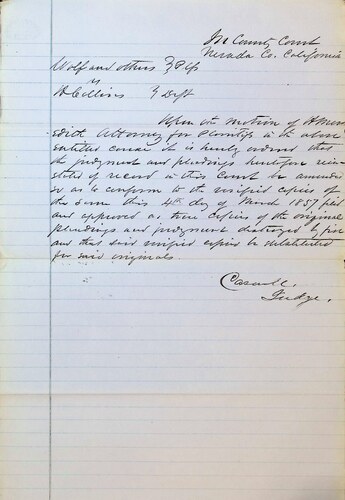 In County Court
Nevada Co. California
Wolf and others } Plfs
vs
H Collins } Deft
Upon the motion of H Mere
edith Attorney for Plaintiffs in the above
entitled cause it is hereby ordered that
the judgment and pleadings heretofore rein
stated of record in this Court be amended
so as to conform to the verified copies of
the same this 4th day of March 1857 filed
and approved as true copies of the original
pleadings and judgment destroyed by fire
and that said verified copies be substituted
for said originals.
Caswell
Judge.